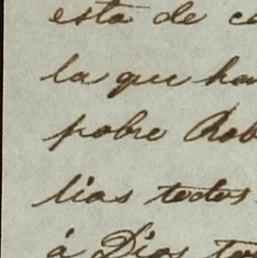 está de c
la que ha
pobre Rob
lias todos
á Dios to